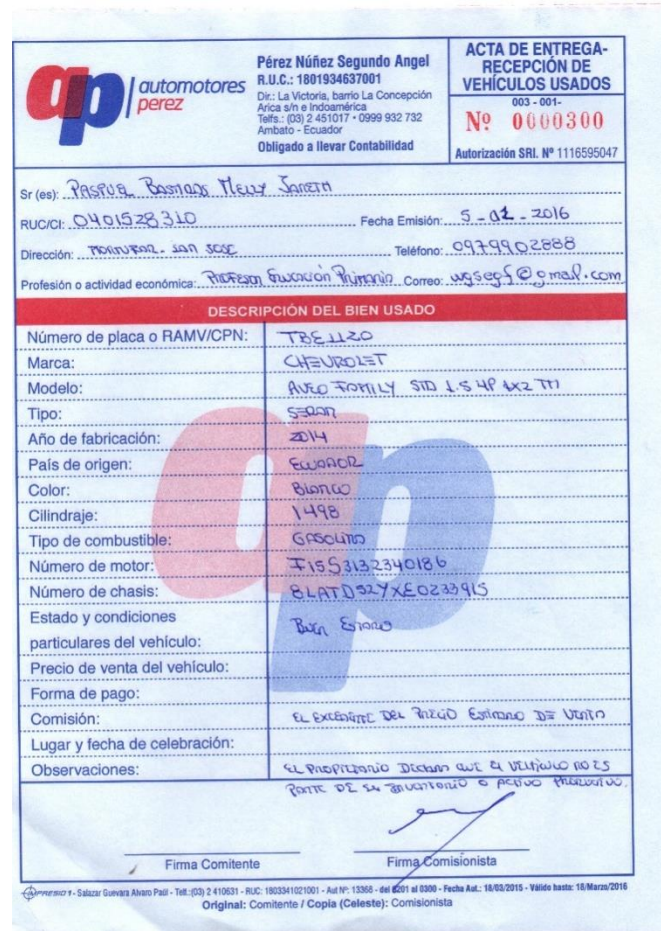 ap automotores perez
Pérez Núñez Segundo Angel
R.U.C.: 1801934637001
Dir.: La Victoria, barrio La Concepción
Arica s/n e Indoamérica
Telfs.: (03) 2 451017 • 0999 932 732
Ambato - Ecuador
Obligado a llevar Contabilidad
ACTA DE ENTREGA-
RECEPCIÓN DE
VEHÍCULOS USADOS
003 - 001-
Nº 0000300
Autorización SRI. Nº 1116595047
Sr (es): Janeth
RUC/CI: 0401528310 Fecha Emisión: 5 - 2016
Dirección: San Jose Teléfono: 0979902888
Profesión o actividad económica: Profesor Correo: @gmail.com
DESCRIPCIÓN DEL BIEN USADO
Número de placa o RAMV/CPN: TBE1120
Marca: CHEVROLET
Modelo: AVEO FAMILY STD 1.5 4P 4X2 TM
Tipo: SEDAN
Año de fabricación: 2014
País de origen: ECUADOR
Color: BLANCO
Cilindraje: 1498
Tipo de combustible: GASOLINA
Número de motor: F15S3132340186
Número de chasis: 8LATD52YXE0233915
Estado y condiciones
particulares del vehículo: BUEN ESTADO
Precio de venta del vehículo:
Forma de pago:
Comisión: EL EXCEDENTE DEL PRECIO ESTIMADO DE VENTA
Lugar y fecha de celebración:
Observaciones: EL PROPIETARIO DECLARA QUE EL VEHICULO NO ES
PARTE DE SU INVENTARIO O ACTIVO PRODUCTIVO.
Firma Comitente
Firma Comisionista
Salazar Guevara Alvaro Paúl - Telf.:(03) 2 410631 - RUC: 1803341021001 - Aut Nº: 13368 - del 0201 al 0300 - Fecha Aut.: 18/03/2015 - Válido hasta: 18/Marzo/2016
Original: Comitente / Copia (Celeste): Comisionista